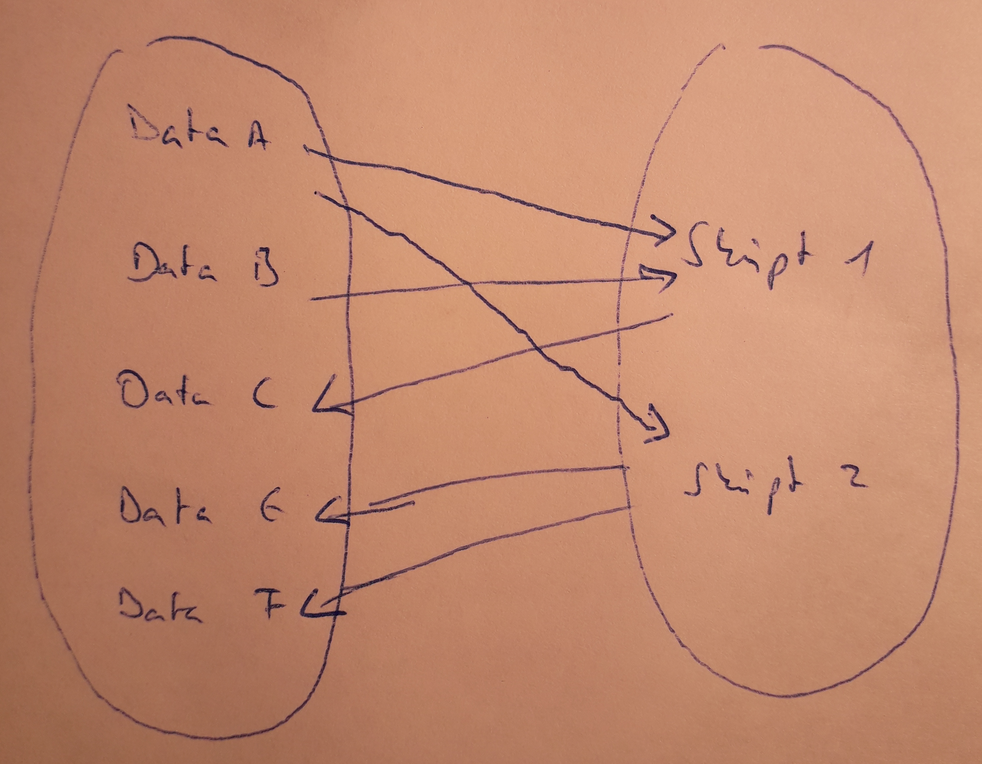 Data A
Data B
Data C
Data E
Data F
Skript 1
Skript 2